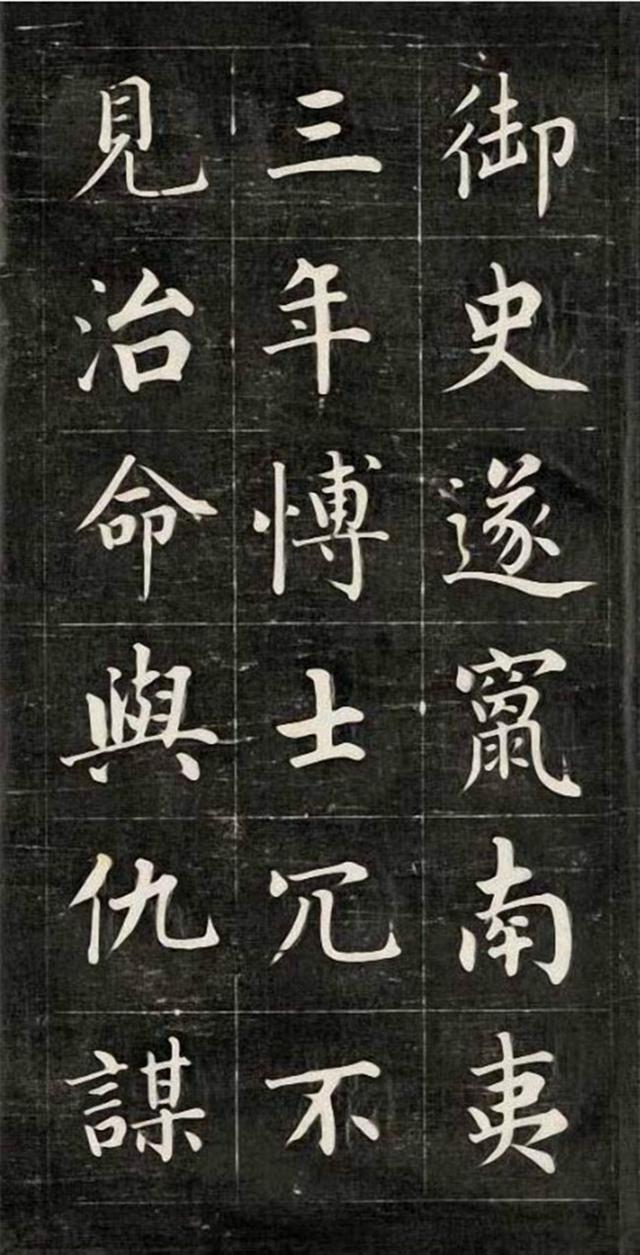 御史遂竄南夷
三年愽士冗不
見治命與仇謀